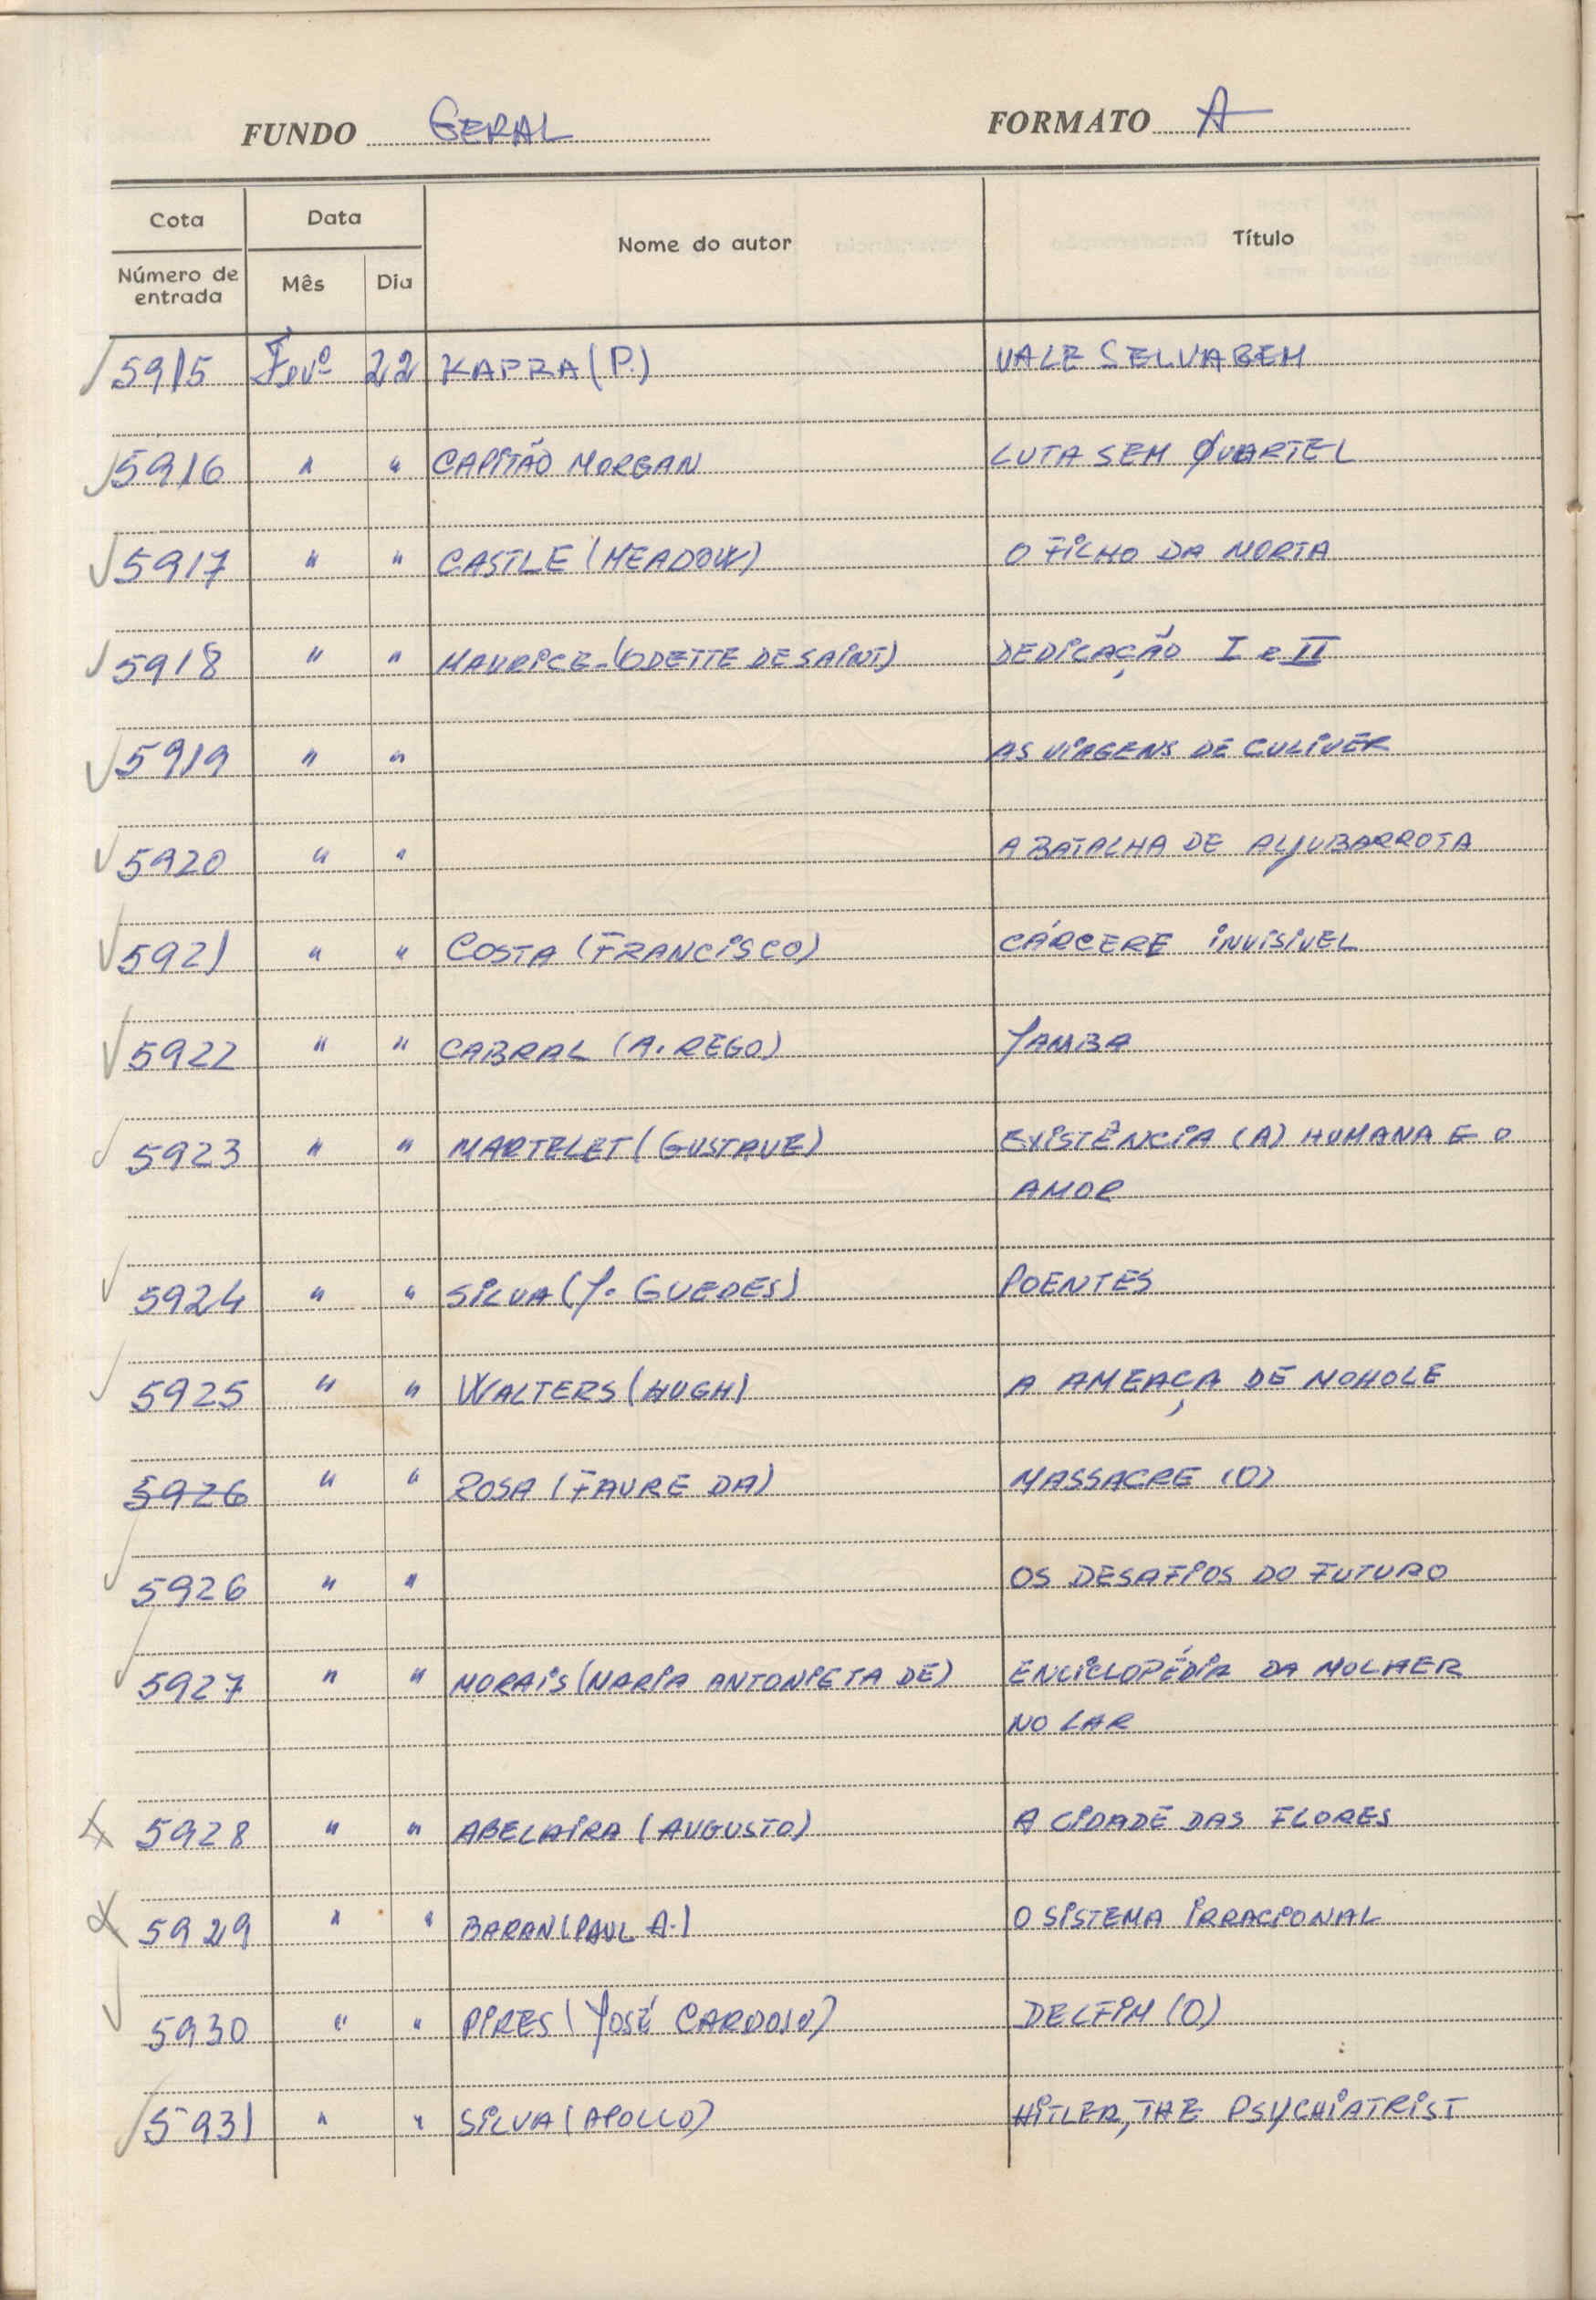 FUNDO GERAL FORMATO A
Cota Data Nome do autor Título
Número de entrada Mês Dia
5915 Fevº 22 KAPRA (P.) VALE SELVAGEM
5916 " " CAPITÃO MORGAN LUTA SEM QUARTEL
5917 " " CASTLE (MEADOW) O FILHO DA MORTA
5918 " " MAURICE - (ODETTE DE SAINT) DEDICAÇÃO I e II
5919 " " AS VIAGENS DE GULIVER
5920 " " A BATALHA DE ALJUBARROTA
5921 " " COSTA (FRANCISCO) CÁRCERE INVISIVEL
5922 " " CABRAL (A. REGO) JAMBA
5923 " " MARTELET (GUSTAVE) EXISTÊNCIA (A) HUMANA E O
AMOR
5924 " " SILVA (J. GUEDES) POENTES
5925 " " WALTERS (HUGH) A AMEAÇA DE MOHOLE
5926 " " ROSA (FAURE DA) MASSACRE (O)
5926 " " OS DESAFIOS DO FUTURO
5927 " " MORAIS (MARIA ANTONIETA DE) ENCICLOPÉDIA DA MULHER
NO LAR
5928 " " ABELAIRA (AUGUSTO) A CIDADE DAS FLORES
5929 " " BARAN (PAUL A.) O SISTEMA IRRACIONAL
5930 " " PIRES (JOSÉ CARDOSO) DELFIM (O)
5931 " " SILVA (APOLLO) HITLER, THE PSYCHIATRIST